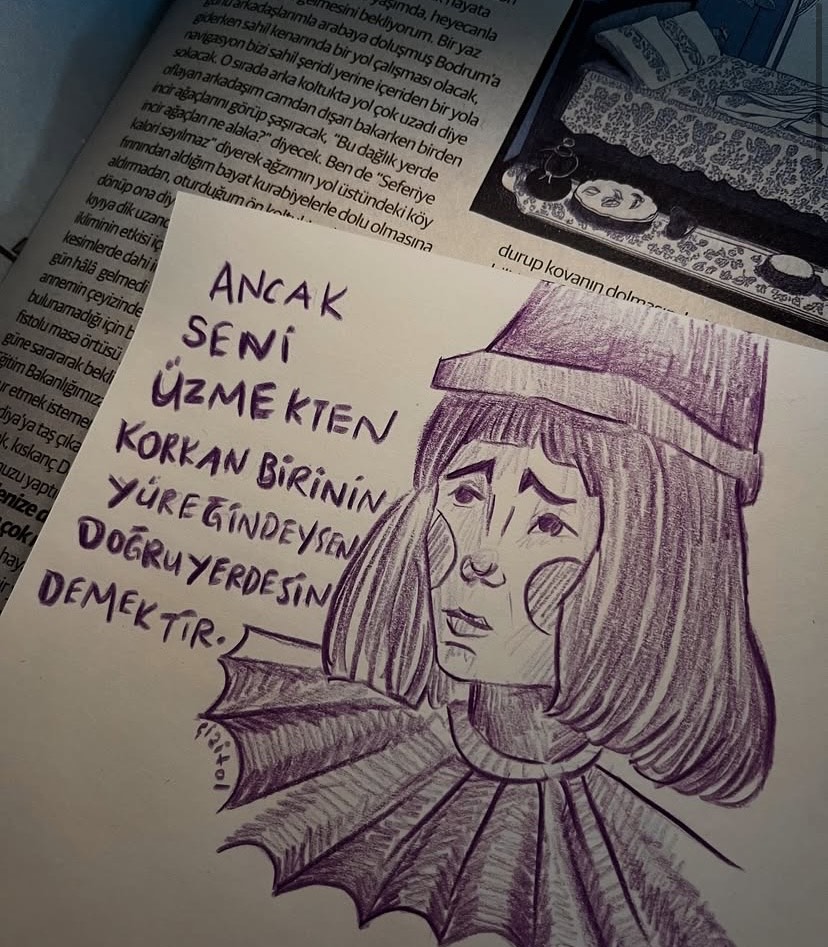 hayata
yaşımda, heyecanla
gelmesini bekliyorum. Bir yaz
günü arkadaşlarımla arabaya doluşmuş Bodrum'a
giderken sahil kenarında bir yol çalışması olacak,
navigasyon bizi sahil şeridi yerine içeriden bir yola
sokacak. O sırada arka koltukta yol çok uzadı diye
oflayan arkadaşım camdan dışarı bakarken birden
incir ağaçlarını görüp şaşıracak, "Bu dağlık yerde
incir ağaçları ne alaka?" diyecek. Ben de "Seferiye
kalori sayılmaz" diyerek ağzımın yol üstündeki köy
fırınından aldığım bayat kurabiyelerle dolu olmasına
aldırmadan, oturduğum ön
dönüp ona
kıyıya dik
ikliminin etkisi iç
kesimlerde dahi
gün hâlâ gelmedi
annemin çeyizinde
bulunamadığı için b
fistolu masa örtüsü
güne sararark bekl
Eğitim Bakanlığımız
etmek isteme
taş çıka
kıskanç D
yaptı
durup kovanın dolmasını
ANCAK
SENİ
ÜZMEKTEN
KORKAN BİRİNİN
YÜREĞİNDEYSEN
DOĞRU YERDESİN
DEMEKTİR.
çizitol